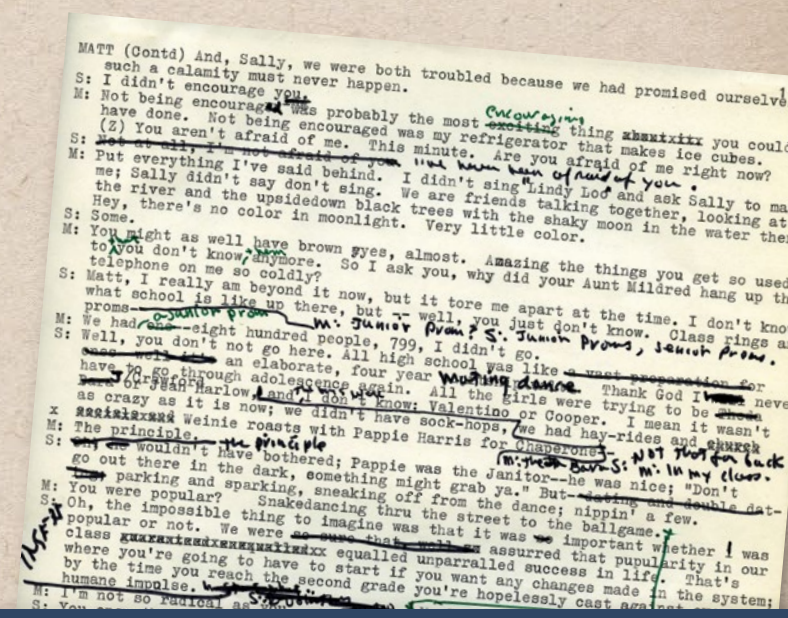 1
MATT (Contd) And, Sally, we were both troubled because we had promised ourselve
such a calamity must never happen.
S: I didn't encourage you.
M: Not being encouraged was probably the most encouraging exciting thing you could
have done. Not being encouraged was my refrigerator that makes ice cubes.
(Z) You aren't afraid of me. This minute. Are you afraid of me right now?
S: Not at all, I'm not afraid of you I've never been afraid of you.
M: Put everything I've said behind. I didn't sing "Lindy Loo" and ask Sally to ma
me; Sally didn't say don't sing. We are friends talking together, looking at
the river and the upsidedown black trees with the shaky moon in the water ther
Hey, there's no color in moonlight. Very little color.
S: Some.
M: You might as well have brown eyes, almost. Amazing the things you get so used
to that you don't know, anymore. So I ask you, why did your Aunt Mildred hang up th
telephone on me so coldly?
S: Matt, I really am beyond it now, but it tore me apart at the time. I don't kno
what school is like up there, but -- well, you just don't know. Class rings a
proms-- M: Junior Prom? S: Junior Proms, senior Proms.
M: We had a junior prom one--eight hundred people, 799, I didn't go.
S: Well, you don't not go here. All high school was like a vast preparation for
an elaborate, four year mating dance Thank God I neve
have to go through adolescence again. All the girls were trying to be
J/Crawford or Jean Harlow, and I don't know: Valentino or Cooper. I mean it wasn't
as crazy as it is now; we didn't have sock-hops, we had hay-rides and church
x Weinie roasts with Pappie Harris for Chaperone.
M: The principle. the principle
S: wouldn't have bothered; Pappie was the Janitor--he was nice; "Don't
go out there in the dark, something might grab ya." But--dating and double dat-
parking and sparking, sneaking off from the dance; nippin' a few.
M: You were popular? Snakedancing thru the street to the ballgame.
S: Oh, the impossible thing to imagine was that it was important whether I was
popular or not. We were assured that pupularity in our
class equalled unparralled success in life. That's
where you're going to have to start if you want any changes made in the system;
by the time you reach the second grade you're hopelessly cast
humane impulse.
M: I'm not so radical as you
S: You